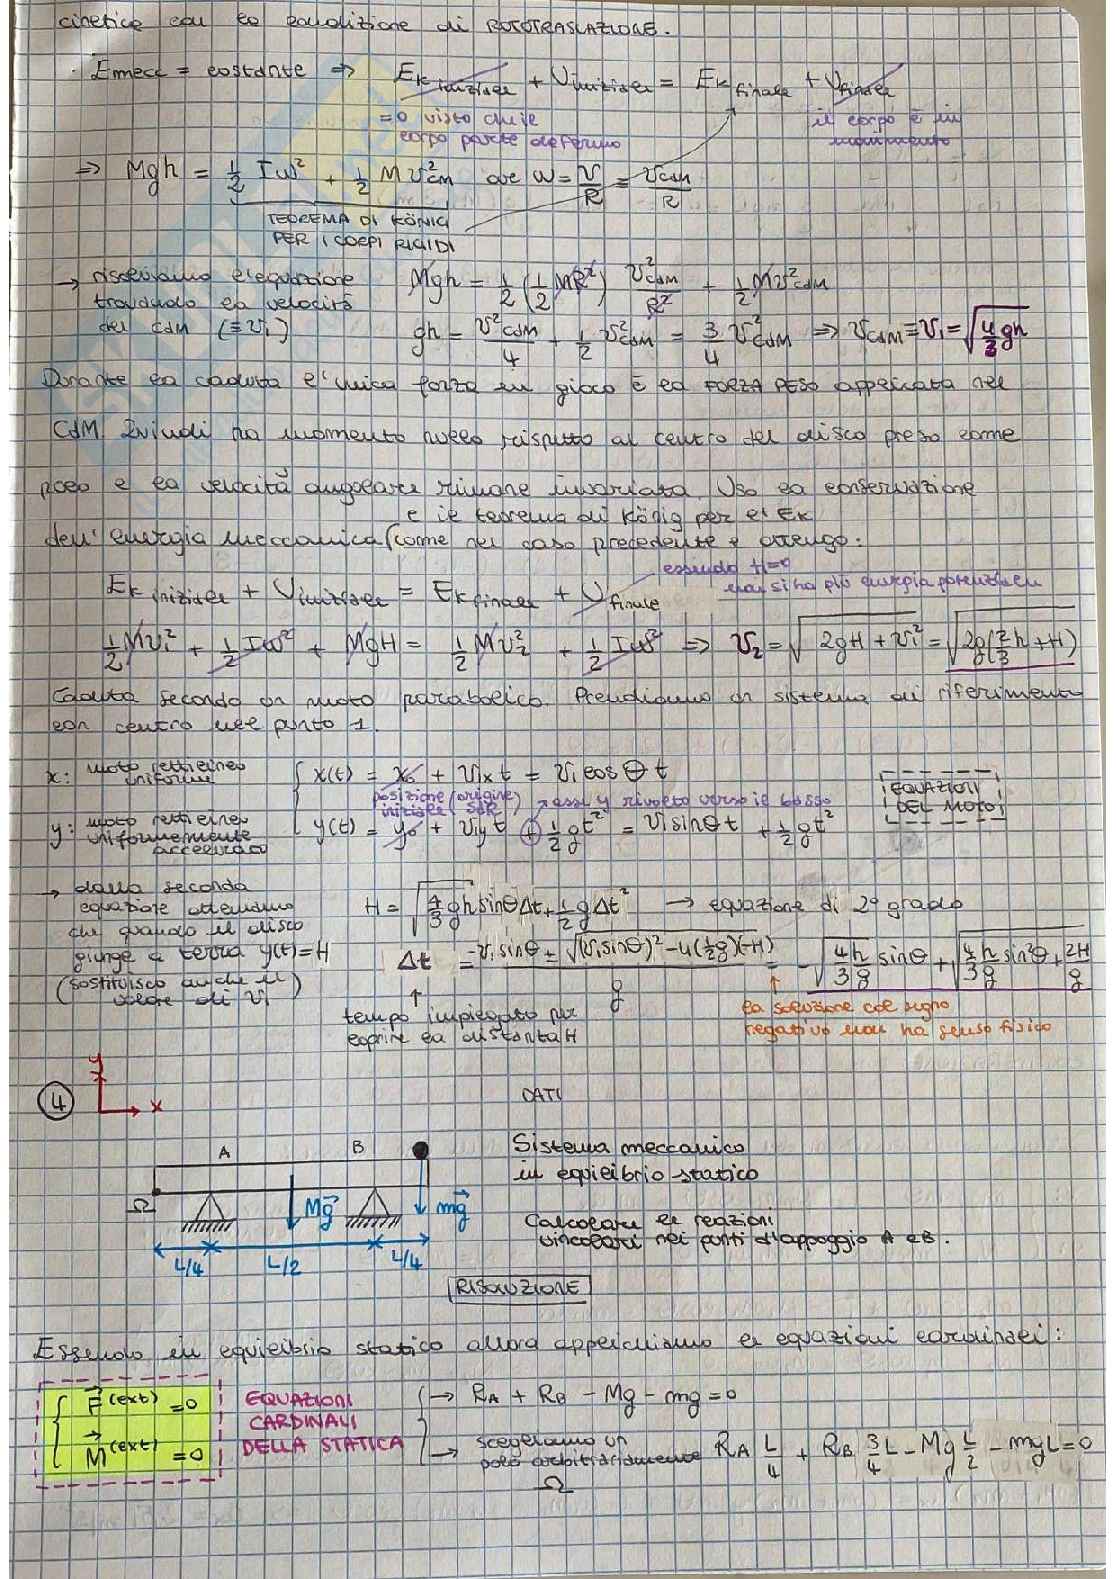 cinetica con la condizione di ROTOTRASLAZIONE.
· Emecc = costante ⇒ Ek iniziale + Uiniziale = Ek finale + Ufinale
=0 visto che il corpo parte da fermo
il corpo è in movimento
⇒ Mgh = 1/2 Iω² + 1/2 M v²cdm ove ω = v/R = vcdm/R
TEOREMA DI KÖNIG
PER I CORPI RIGIDI
→ risolviamo l'equazione
trovando la velocità
del cdm (≡ v₁)
Mgh = 1/2 (1/2 MR²) v²cdm/R² + 1/2 M v²cdm
gh = v²cdm/4 + 1/2 v²cdm = 3/4 v²cdm ⇒ vcdM ≡ v₁ = √(4/3 gh)
Durante la caduta l'unica forza in gioco è la FORZA PESO applicata nel
CdM. Quindi ha momento nullo rispetto al centro del disco preso come
polo e la velocità angolare rimane invariata. Uso la conservazione
e il teorema di König per l'Ek
dell'energia meccanica (come nel caso precedente e ottengo:
essendo H=0
non si ha più energia potenziale
Ek iniziale + Uiniziale = Ek finale + Ufinale
1/2 Mv₁² + 1/2 Iω² + MgH = 1/2 Mv₂² + 1/2 Iω² ⇒ v₂ = √(2gH + v₁²) = √(2g(2/3 h + H))
Caduta secondo un moto parabolico. Prendiamo un sistema di riferimento
con centro nel punto 1.
x: moto rettilineo
uniforme
{ x(t) = x₀ + v₁x t = v₁ cos θ t
posizione iniziale (origine SdR)
→ asse y rivolto verso il basso
EQUAZIONI
DEL MOTO
y: moto rettilineo
uniformemente
accelerato
y(t) = y₀ + v₁y t + 1/2 gt² = v₁ sinθ t + 1/2 gt²
→ dalla seconda
equazione otteniamo
che quando il disco
giunge a terra y(t)=H
(sostituisco anche il
valore di v₁)
H = √(4/3 gh) sinθ Δt + 1/2 g Δt² → equazione di 2° grado
Δt = (-v₁ sinθ ± √((v₁ sinθ)² - 4(1/2 g)(-H)))/g = -√(4h/3g) sinθ + √(4h/3g sin²θ + 2H/g)
↑
tempo impiegato per
coprire la distanza H
↑
la soluzione col segno
negativo non ha senso fisico
④ y x
DATI
A B
Sistema meccanico
in equilibrio statico
Ω Mg⃗ mg⃗
Calcolare le reazioni
vincolari nei punti d'appoggio A e B.
L/4 L/2 L/4
RISOLUZIONE
Essendo in equilibrio statico allora applichiamo le equazioni cardinali:
{ F⃗(ext) = 0
M⃗(ext) = 0
EQUAZIONI
CARDINALI
DELLA STATICA
{ → RA + RB - Mg - mg = 0
→ scegliamo un
polo arbitrariamente
Ω
RA L/4 + RB 3/4 L - Mg L/2 - mgL = 0